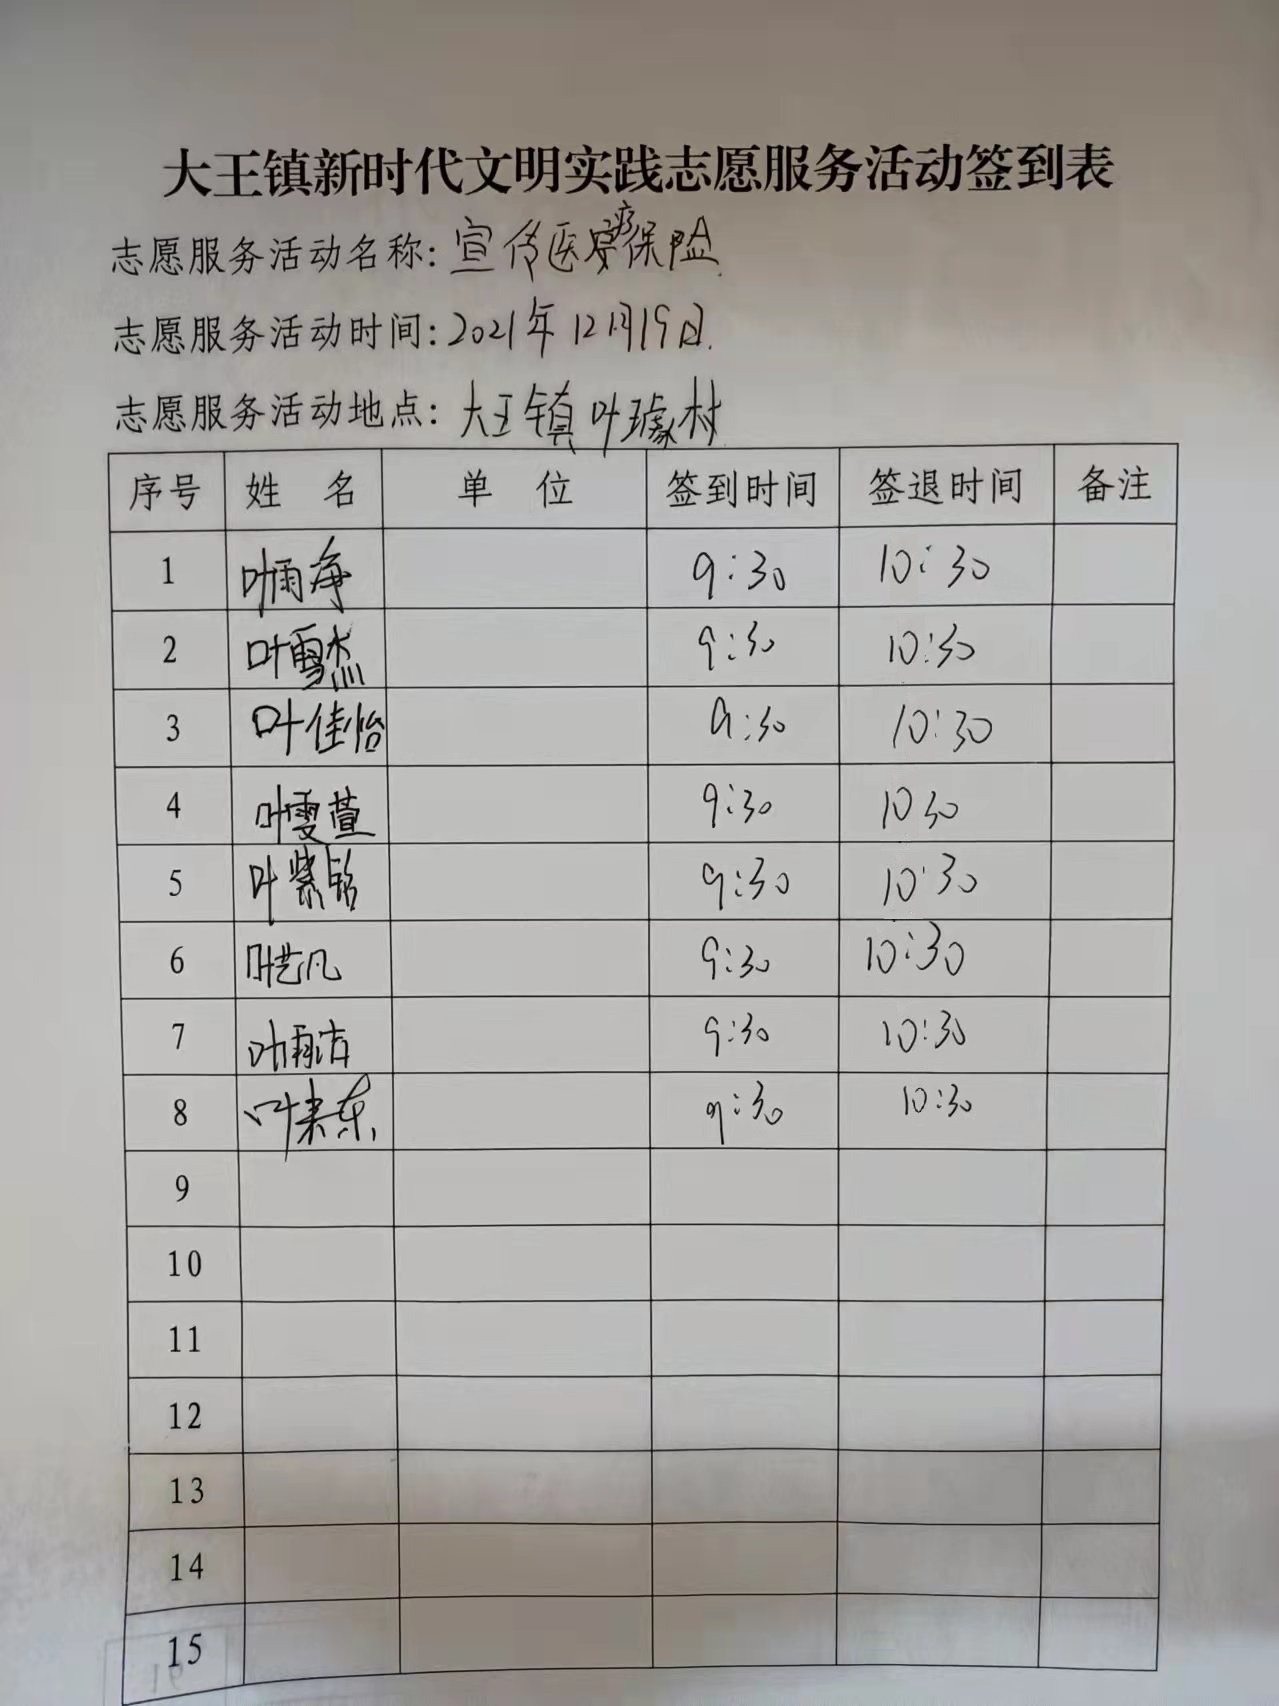 大王镇新时代文明实践志愿服务活动签到表
志愿服务活动名称:宣传医疗保险
志愿服务活动时间:2021年12月19日.
志愿服务活动地点:大王镇叶璩村
序号 姓名 单位 签到时间 签退时间 备注
1 叶雨净 9:30 10:30
2 叶雪杰 9:30 10:30
3 叶佳怡 9:30 10:30
4 叶雯萱 9:30 1030
5 叶紫 9:30 10:30
6 叶艺凡 9:30 10:30
7 叶雨洁 9:30 10:30
8 叶来东 9:30 10:30
9
10
11
12
13
14
15